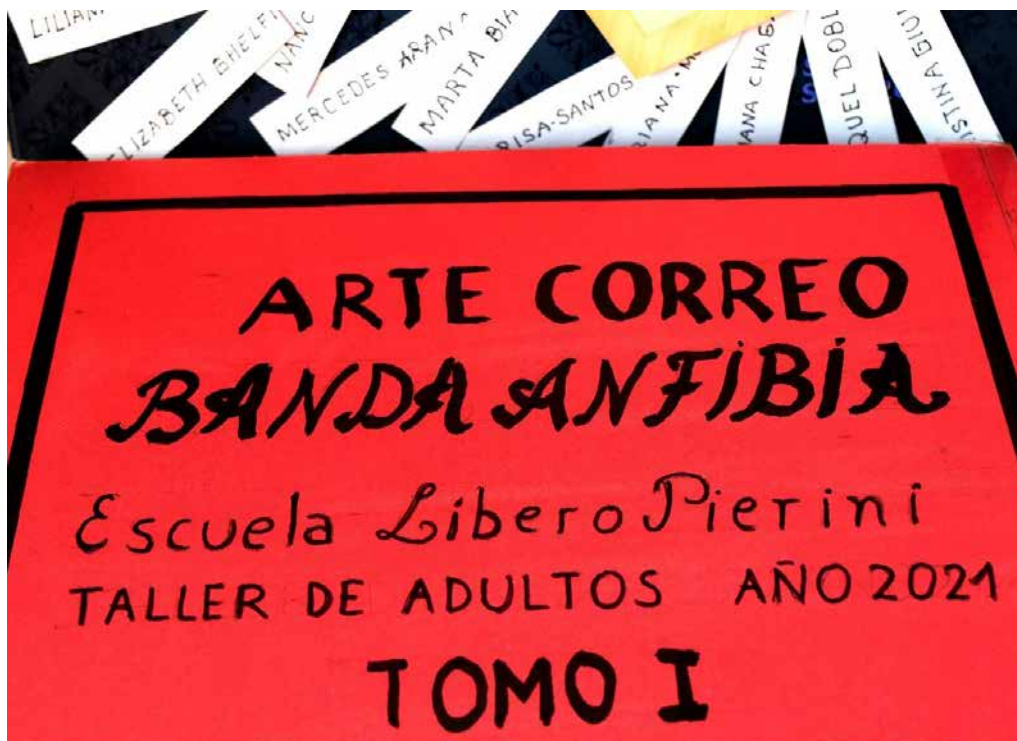 ELIZABETH GHELFI
MERCEDES ARAN
MARTA BIA
RISA-SANTOS
IANA CHAB
QUEL DOBL
ISTINA GIU
ARTE CORREO
BANDA ANFIBIA
Escuela Libero Pierini
TALLER DE ADULTOS AÑO 2021
TOMO I